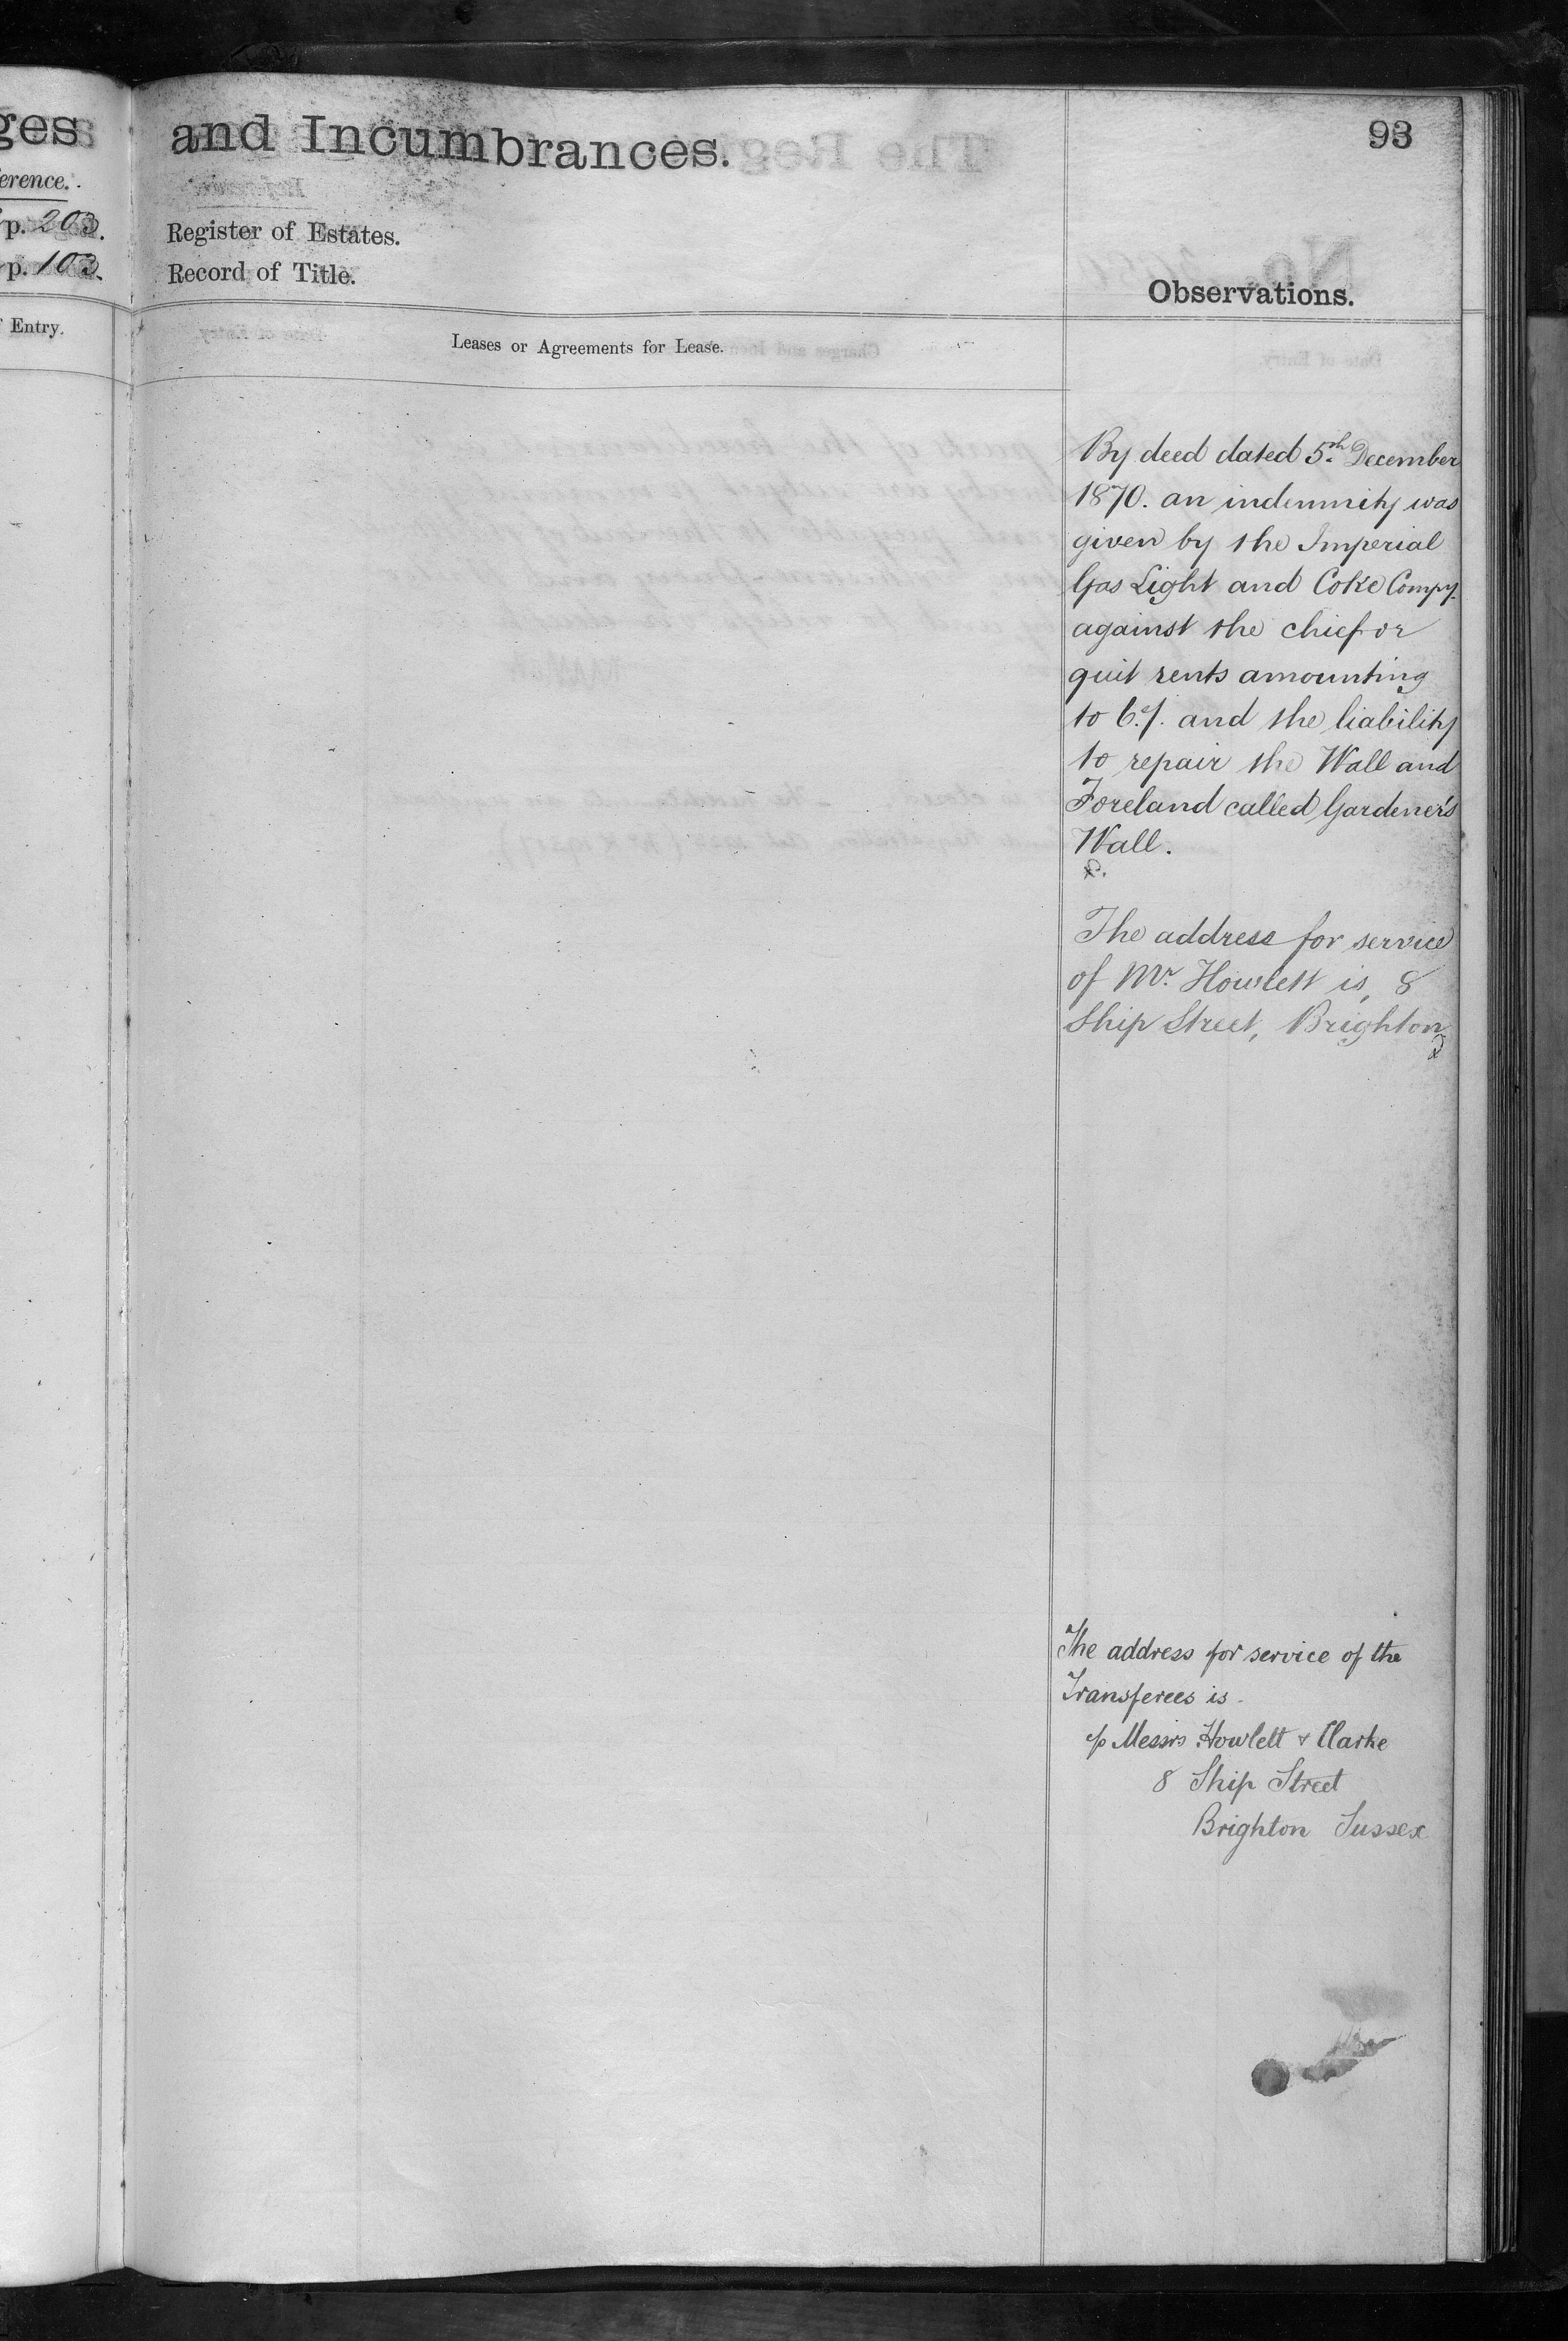 ges
erence.
p. 203.
p. 103.
Entry.
and Incumbrances.
93
Register of Estates.
Record of Title.
Observations.
Leases or Agreements for Lease.
By deed dated 5th December
1870. an indemnity was
given by the Imperial
Gas Light and Coke Compy.
against the chief or
quit rents amounting
to and the liability
to repair the Wall and
Foreland called Gardener's
Wall.
The address for service
of Mr. Howlett is, 8
Ship Street, Brighton
The address for service of the
Transferees is
c/o Messrs Howlett & Clarke
8 Ship Street
Brighton Sussex